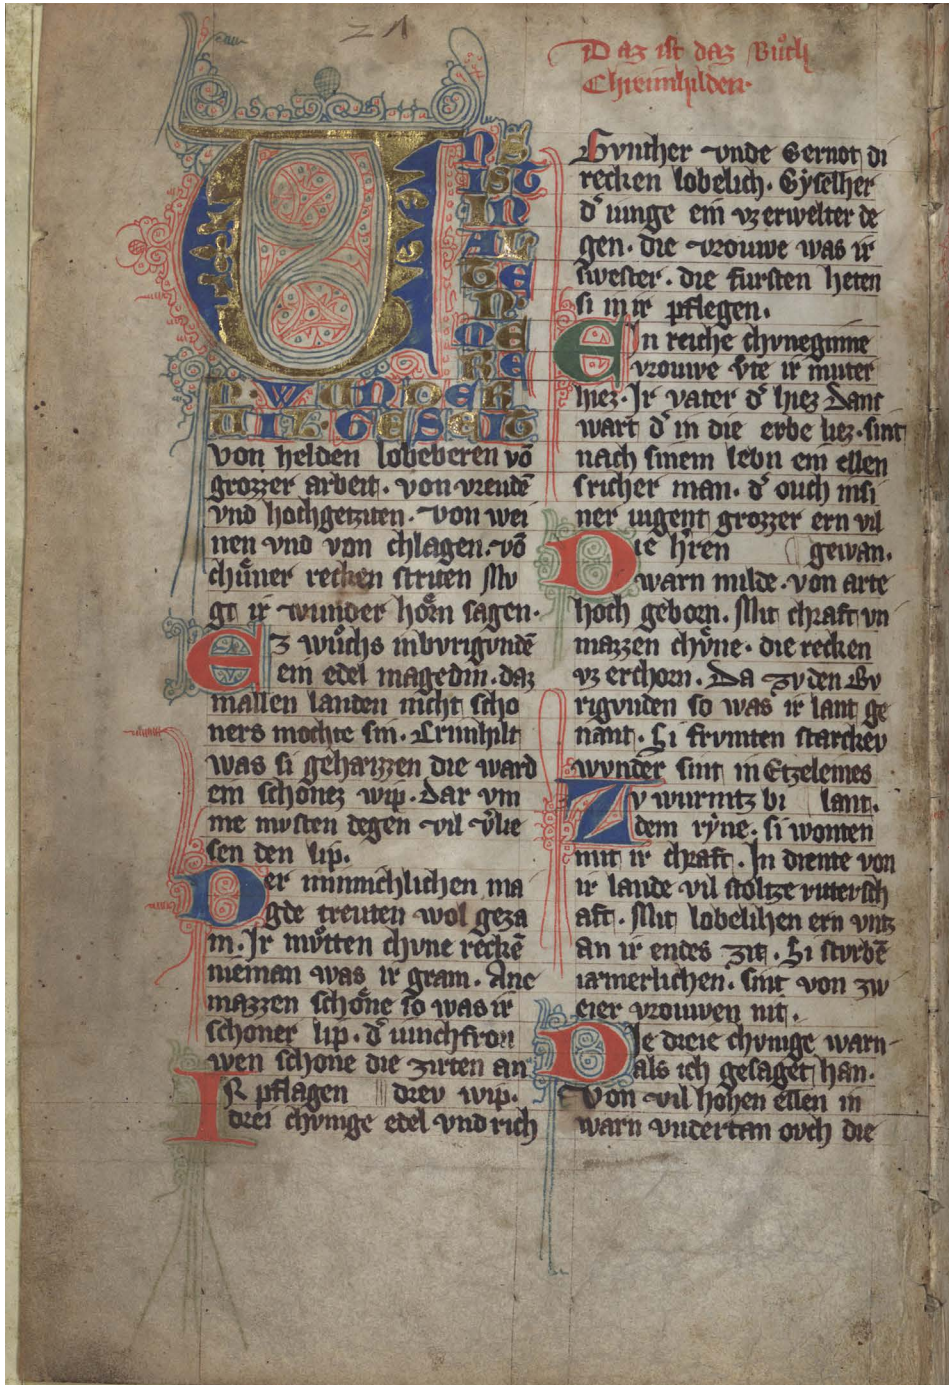 21
Daz ist daz Buͦch
Chreimhilden.
UNS
IST
IN
AL
TE
N
ME
RE
N. WUNDER
UIL. GESEIT
von helden lobeberen vō
grozzer arbeit. von vreudē
vnd hochgetziten. von wei
nen vnd von chlagen. vō
chuͤner recken striten Mu
gt ir wunder hoͤrn sagen.
Ez wuͦchs inbvrigvndē
ein edel magedin. daz
inallen landen nicht scho
ners mochte sin. Crimhilt
was si geheizzen die ward
ein schonez wip. Dar vm
me mvsten degen vil v͛lie
sen den lip.
Der minnichlichen ma
gde treuten wol geza
m. Ir muͦtten chvne reckē
nieman was ir gram. Ane
mazzen schoͤne so was ir
schoner lip. d͛ iunchfrou
wen schone die zirten an
IR pflagen drev wip.
drei chvnige edel vnd rich
Gvnther vnde Gernot di
recken lobelich. Gyselher
d͛ iunge ein vz erwelter de
gen. die vrouwe was ir
swester. die fursten heten
si in ir pflegen.
Ein reiche chvneginne
vrouwe vͦte ir muter
hiez. Ir vater d͛ hiez Danc
wart d͛ in die erbe liez. sint
nach sinem lebn ein ellen
sricher man. d͛ ouch insi
ner iugent grozzer ern vil
Die h͛ren gewan.
warn milde. von arte
hoch geborn. Mit chraft vn
mazzen chvͤne. die recken
vz erchorn. Da zv den Bv
rigvnden so was ir lant ge
nant. Si frvmten starckev
wvnder sint in Etzelemes
Zv wurmtz bi lant.
dem ryne. si wonten
mit ir chraft. In diente von
ir lande vil stoltze rittersch
aft. Mit lobelihen ern vntz
an ir endes zit. Si stvrbē
iæmerlichen. sint von zw
eier vrouwen nit.
Die dreie chvnige warn
als ich gesaget han.
Von vil hohen ellen in
warn vndertan ovch die